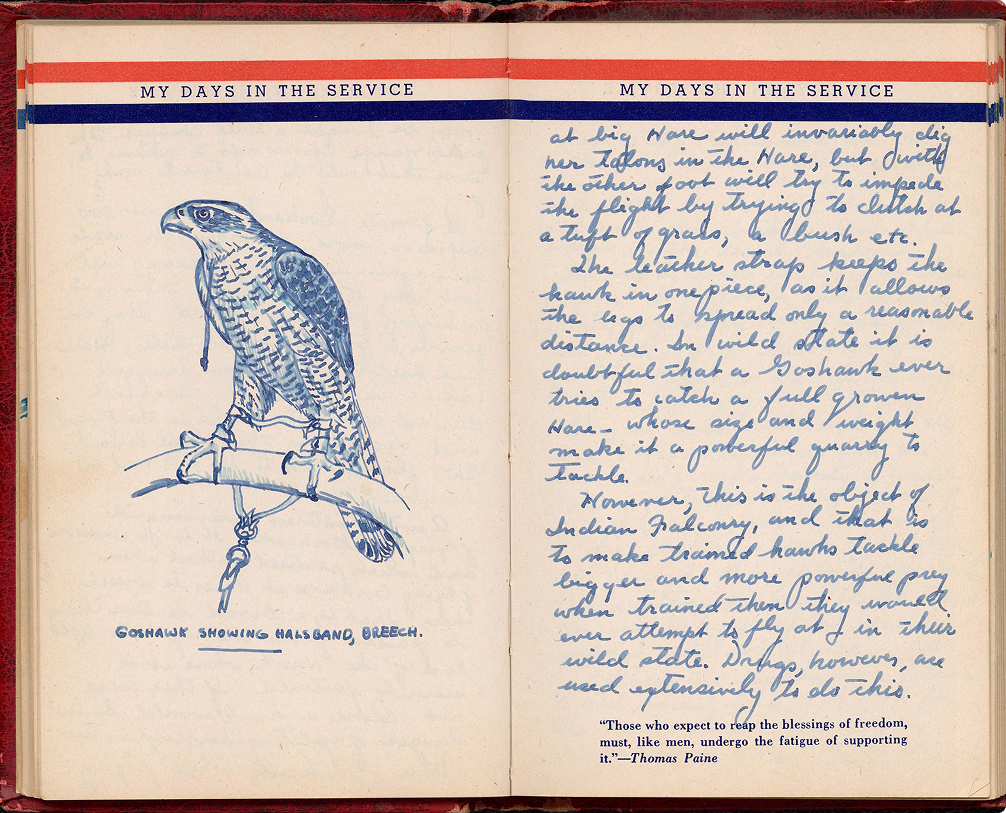 MY DAYS IN THE SERVICE
GOSHAWK SHOWING HALSBAND, BREECH.
MY DAYS IN THE SERVICE
at big Hare will invariably dig
her talons in the Hare, but with
the other foot will try to impede
the flight by trying to clutch at
a tuft of grass, a bush etc.
The leather strap keeps the
hawk in one piece, as it allows
the legs to spread only a reasonable
distance. In wild state it is
doubtful that a Goshawk ever
tries to catch a full grown
Hare – whose size and weight
make it a powerful quarry to
tackle.
However, this is the object of
Indian Falconry, and that is
to make trained hawks tackle
bigger and more powerful prey
when trained then they would
ever attempt to fly at in their
wild state. Drugs, however, are
used extensively to do this.
“Those who expect to reap the blessings of freedom,
must, like men, undergo the fatigue of supporting
it.”—Thomas Paine